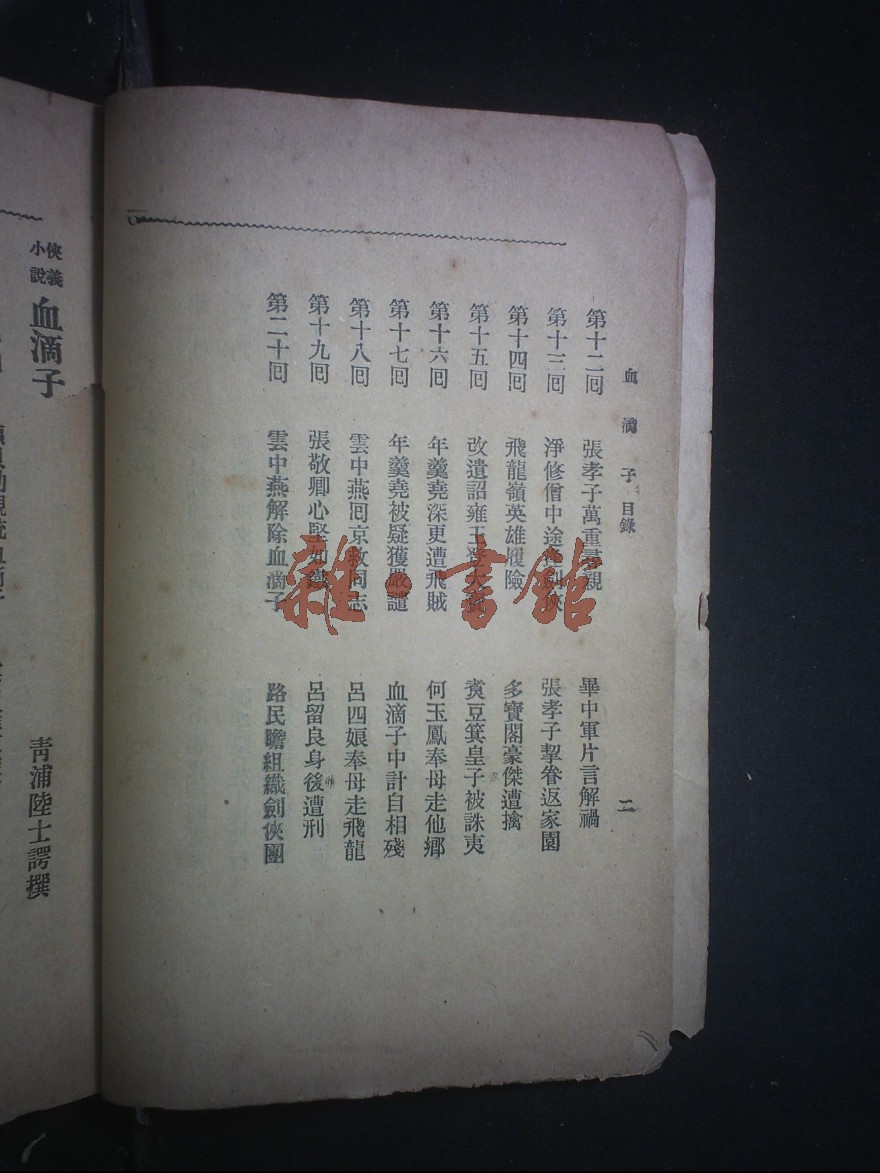 血滴子 目錄
二
第十二囘 張孝子萬重尋親 畢中軍片言解禍
第十三囘 淨修僧中途逢劍俠 張孝子挈眷返家園
第十四囘 飛龍嶺英雄履險 多寶閣豪傑遭擒
第十五囘 改遺詔雍王登大寶 煑豆箕皇子被誅夷
第十六囘 年羹堯深更遭飛賊 何玉鳳奉母走他鄉
第十七囘 年羹堯被疑獲嚴譴 血滴子中計自相殘
第十八囘 雲中燕囘京救同志 呂四娘奉母走飛龍
第十九囘 張敬卿心堅如鐵 呂留良身後遭刑
第二十囘 雲中燕解除血滴子 路民瞻組織劍俠團
俠義小說 血滴子
靑浦陸士諤撰
雜·書館